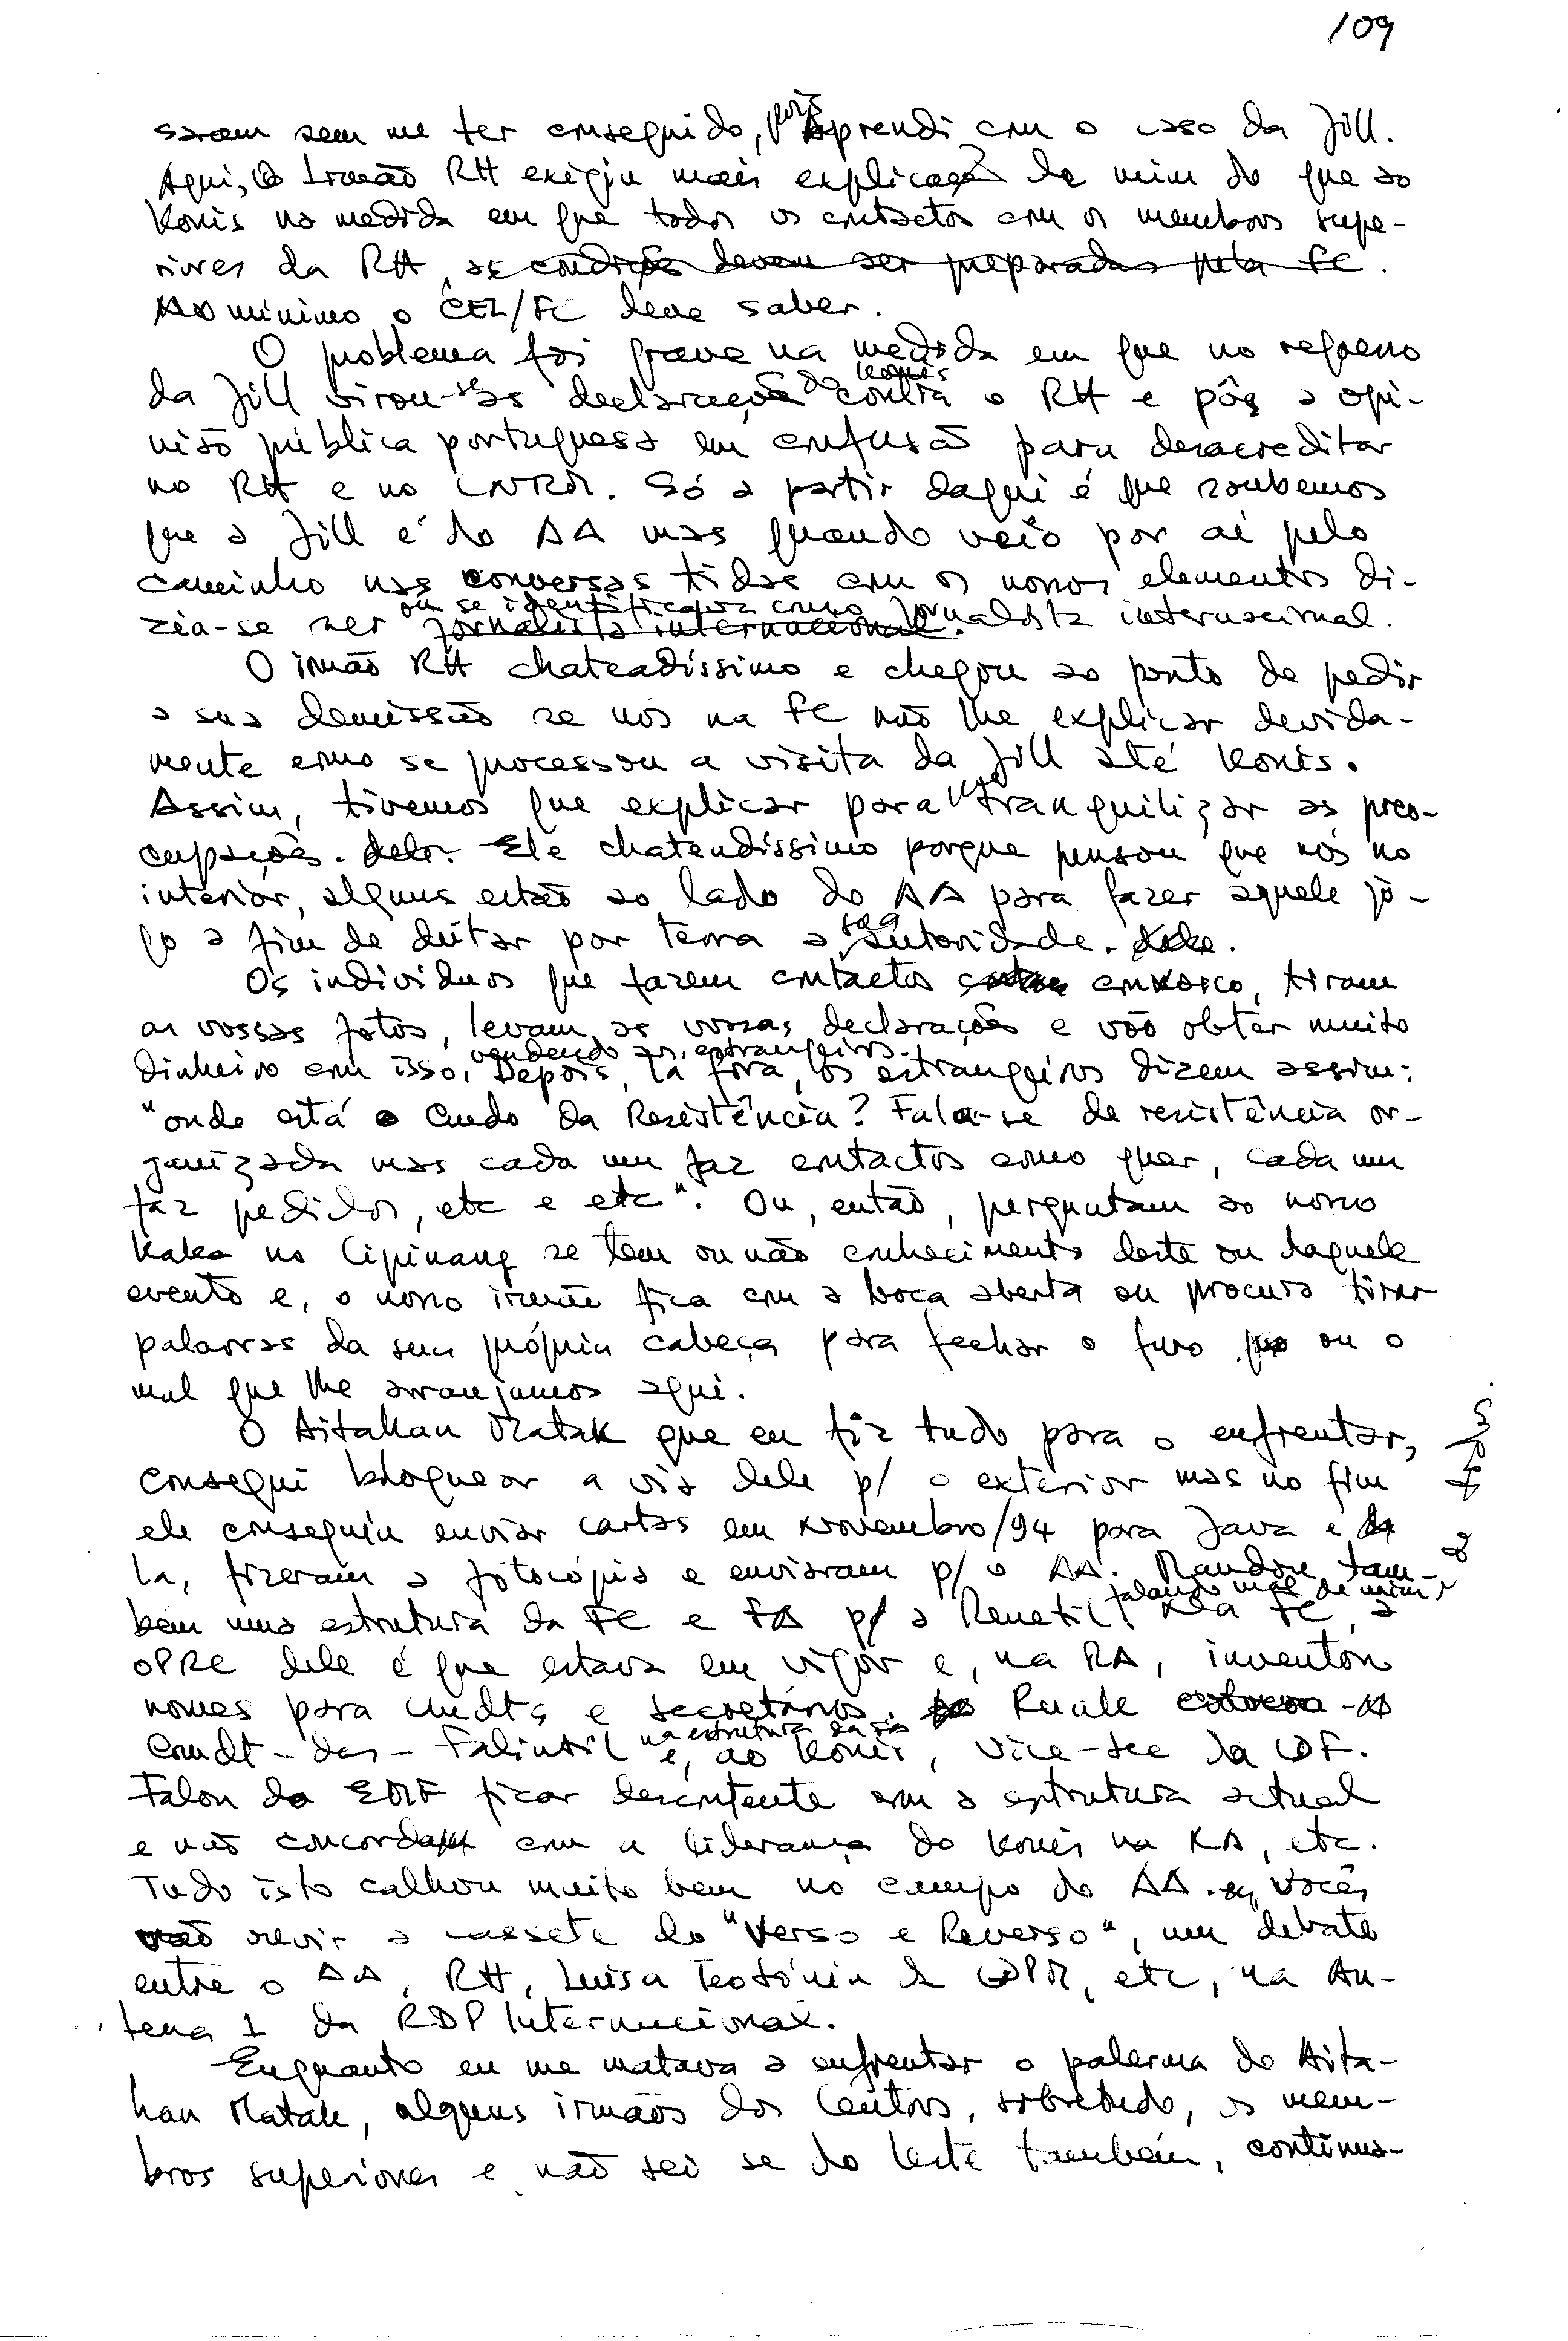 109
saram sem me ter conseguido, pois aprendi com o caso da Jill.
Aqui, o Irmão RH exigiu mais explicação de mim do que ao
Konis na medida em que todos os contactos com os membros supe-
riores da RH, as condições devem ser preparadas pela FC.
Ao minimo o CEL/FC deve saber.
O problema foi grave na medida em que no regresso
da Jill virou-se as declarações do Konis contra o RH e pôs a opi-
nião pública portuguesa em confusão para desacreditar
no RH e no CNRM. Só a partir daqui é que soubemos
que a Jill é do AA mas quando veio por aí pelo
caminho nas conversas tidas com os nossos elementos di-
zia-se ser ou se identificava como jornalista internacional.
O irmão RH chateadíssimo e chegou ao ponto de pedir
a sua demissão se nós na FC não lhe explicar devida-
mente como se processou a visita da Jill até Konis.
Assim, tivemos que explicar para tranquilizar as preo-
cupações. Ele chateadíssimo porque pensou que nós no
interior, alguns estão ao lado do AA para fazer aquele jo-
go a fim de deitar por terra a sua autoridade.
Os individuos que fazem contactos connosco, tiram
as vossas fotos, levam as vossas declarações e vão obter muito
dinheiro com isso, vendendo aos estrangeiros. Depois, lá fora, os estrangeiros dizem assim:
"onde está o Cmdo da Resistência? Fala-se de resistência or-
ganizada mas cada um faz contactos como quer, cada um
faz pedidos, etc e etc". Ou, então, perguntam ao nosso
Kaka no Cipinang se tem ou não conhecimento deste ou daquele
evento e, o nosso irmão fica com a boca aberta ou procura tirar
palavras da sua própria cabeça para fechar o furo ou o
mal que lhe arranjamos aqui.
O Aitahan Matak que eu fiz tudo para o enfrentar,
consegui bloquear a via dele p/ o exterior mas no fim
ele conseguiu enviar cartas em Novembro/94 para Java e
la, fizeram a fotocópia e enviaram p/ o AA. Mandou tam-
bém uma estrutura da FC e FA p/ a Renetil falando mal de mim. Na FC, a
OPRC dele é que estava em vigôr e, na RA, inventou
nomes para Cmdts e secretários. Ruale
Comdt-das-Falintil na estrutura e, ao Konis, Vice-sec da CDF.
Falou do EMF ficar descontente com a estrutura actual
e não concordam com a liderança do Konis na RA, etc.
Tudo isto calhou muito bem no campo do AA. Vocês
vão ouvir a cassete do "Verso e Reverso", um debate
entre o AA, RH, Luisa Teotónia da CDPM, etc, na An-
tena 1 da RDP Internacional.
Enquanto eu me matava a enfrentar o palerma do Aita-
han Matak, alguns irmãos dos Centros, sobretudo, os mem-
bros superiores e não sei se do leste também, continua-